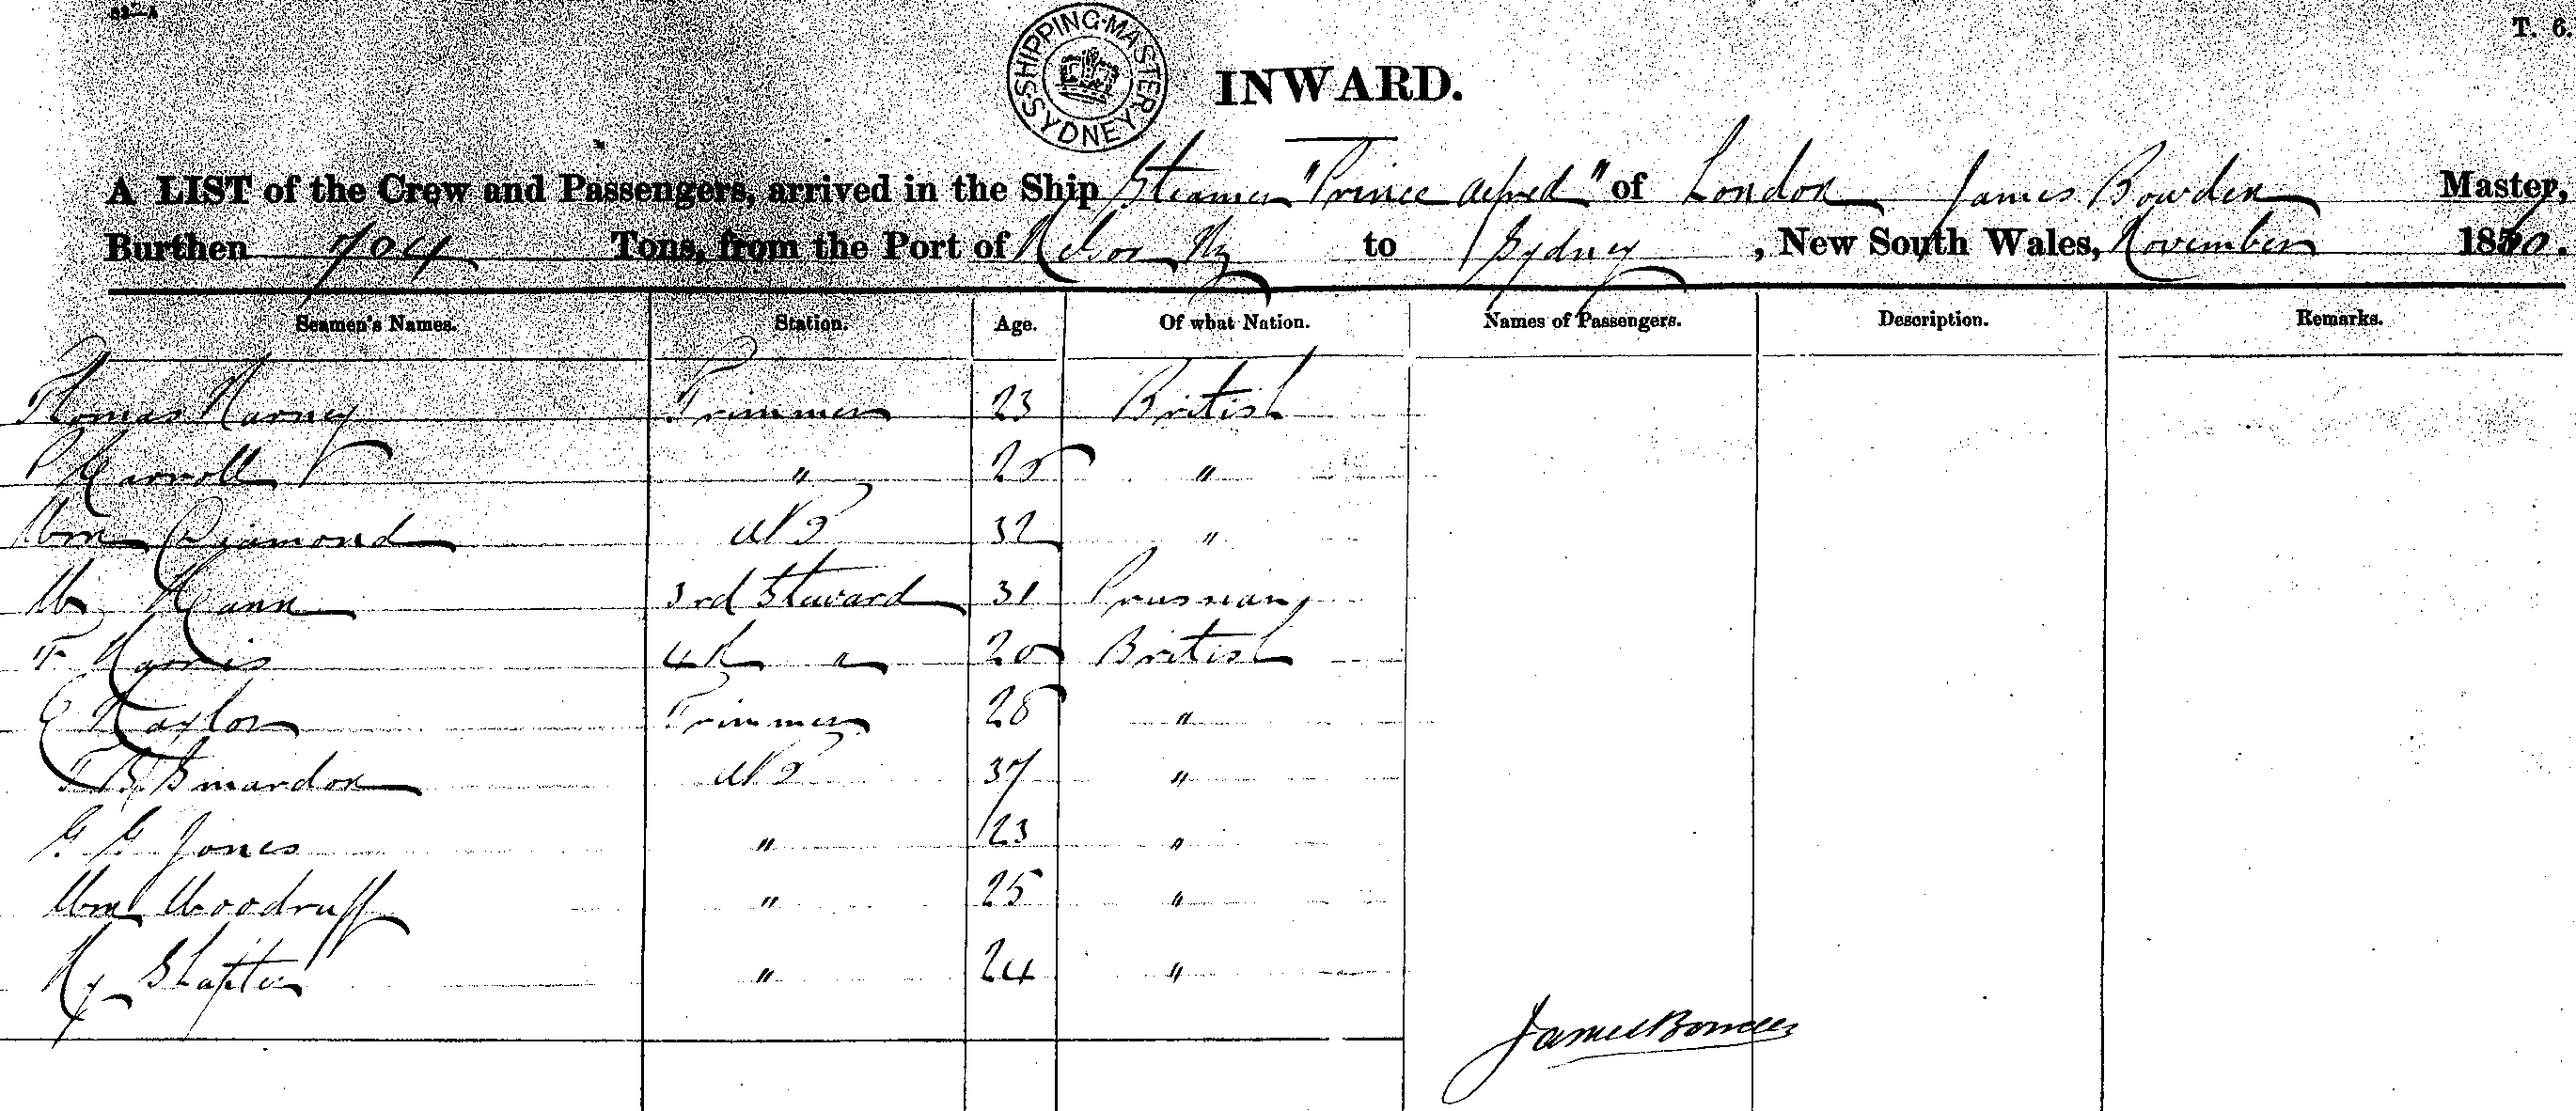 T. 6.
SHIPPING MASTER SYDNEY
INWARD.
A LIST of the Crew and Passengers, arrived in the Ship Steamer "Prince Alfred" of London James Bowden Master,
Burthen 704 Tons, from the Port of Nelson NZ to Sydney, New South Wales, November 18
Seamen's Names. Station. Age. Of what Nation. Names of Passengers. Description. Remarks.
Thomas Trimmer 23 British
P Carroll " 25 "
Wm Diamond AB 32 "
Wm 3rd Steward 31 Prussian
F Harris 4th " 20 British
E Trimmer 28 "
AB 37 "
G. G. Jones " 23 "
Wm Woodruff " 25 "
Hy Shapter " 24 "
James Bowden